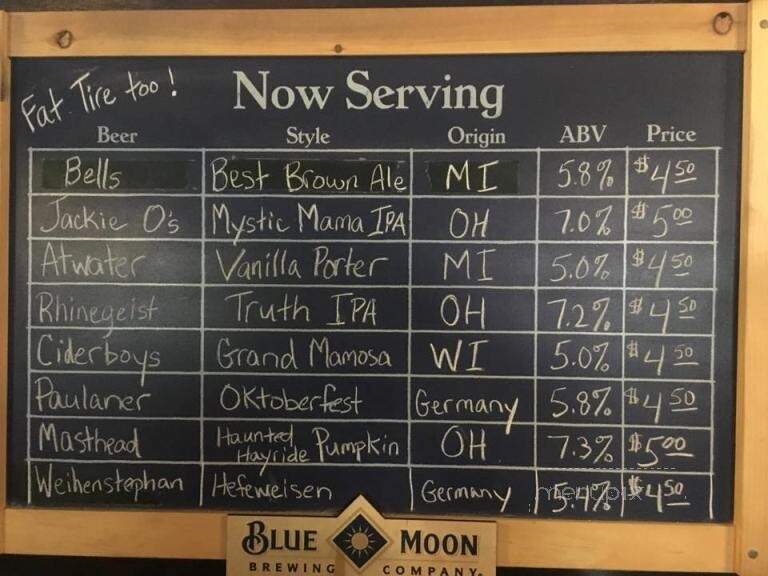 Fat Tire too!
Now Serving
Beer Style Origin ABV Price
Bells Best Brown Ale MI 5.8% $4.50
Jackie O's Mystic Mama IPA OH 7.0% $5.00
Atwater Vanilla Porter MI 5.0% $4.50
Rhinegeist Truth IPA OH 7.2% $4.50
Ciderboys Grand Mamosa WI 5.0% $4.50
Paulaner Oktoberfest Germany 5.8% $4.50
Masthead Haunted Hayride Pumpkin OH 7.3% $5.00
Weihenstephan Hefeweisen Germany 5.4% $4.50
menupix
BLUE MOON
BREWING COMPANY.